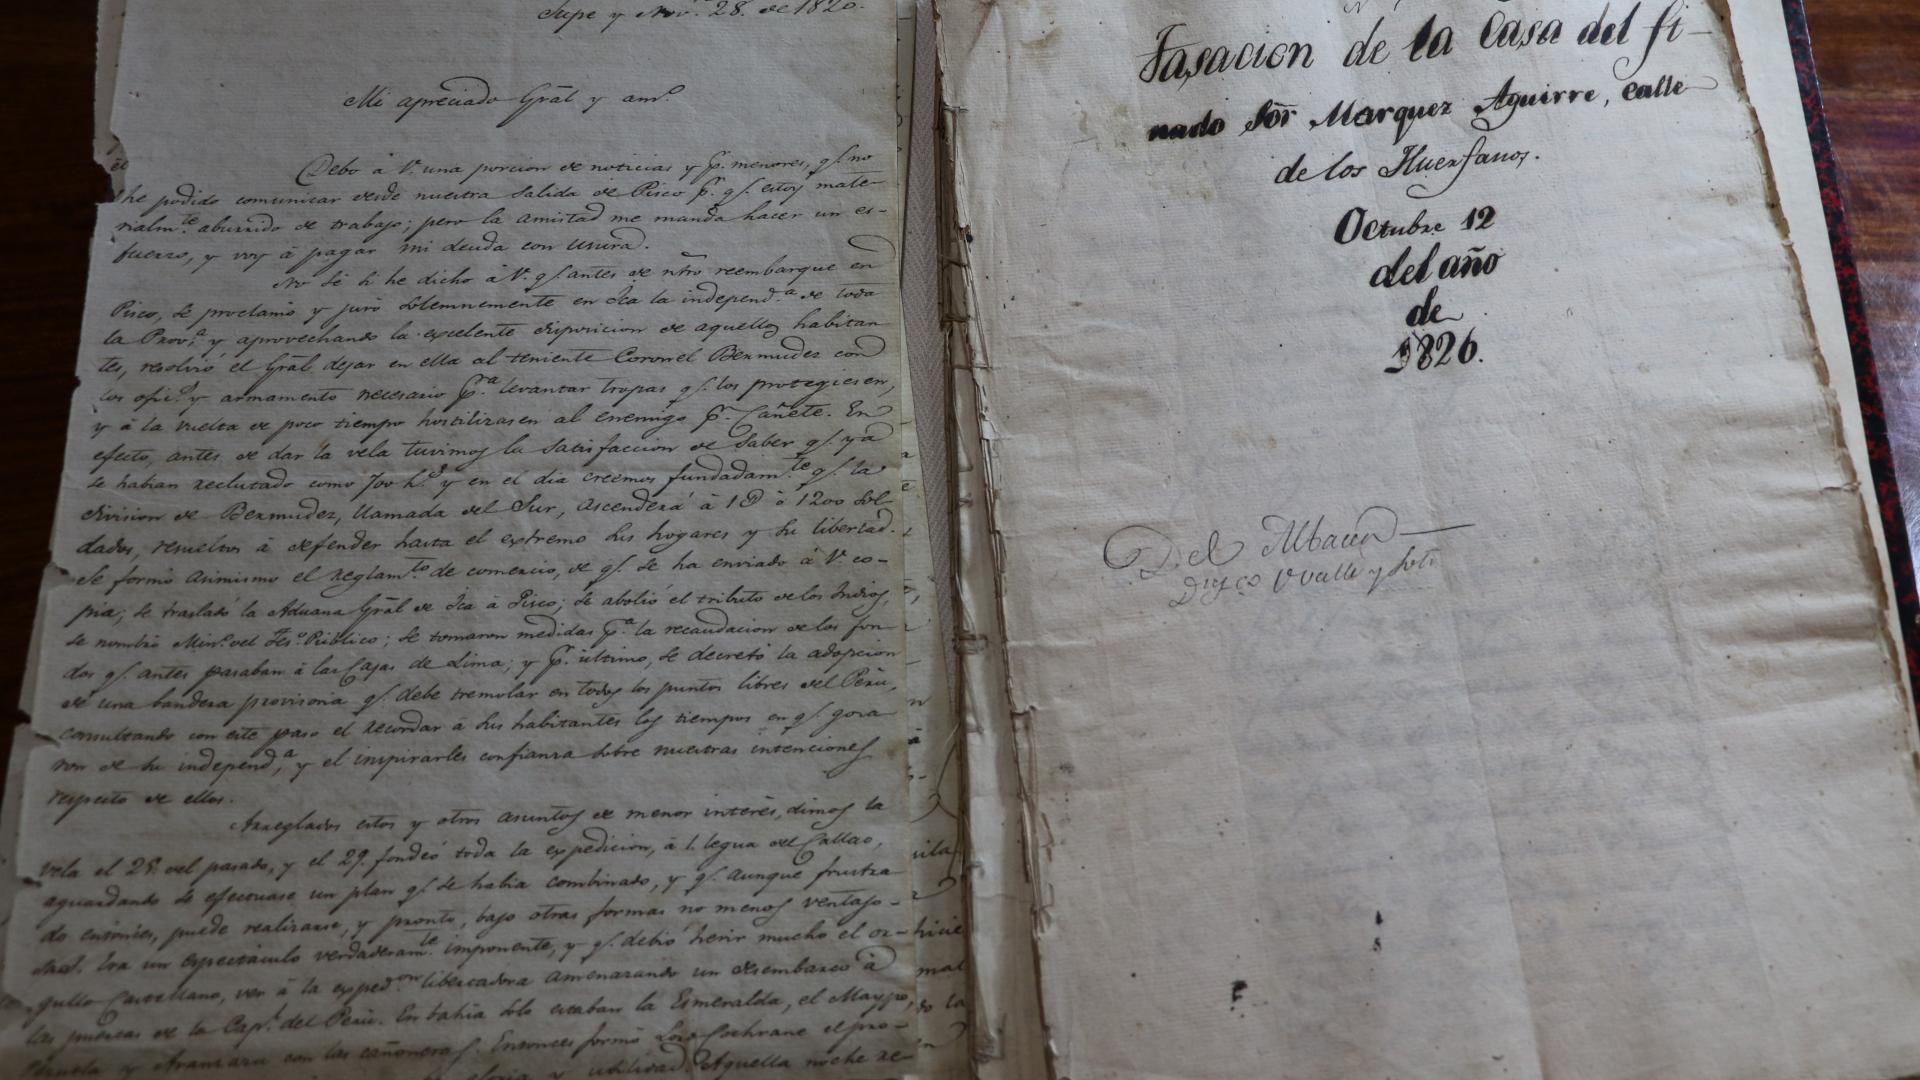 Supe y Nov.e 28. de 1820.
Mi apreciado Grãl y am.o
Debo à V. una porcion de noticias y p.r menores, q.e no
he podido comunicar desde nuestra salida de Pisco p.r q.e estoy mate-
rialm.te aburrido de trabajo; pero la amistad me manda hacer un es-
fuerzo, y voy à pagar mi deuda con usura.
No sé si he dicho à V. q.e antes de ntro reembarque en
Pisco, se proclamó y juró solemnemente en Ica la independ.a de toda
la Prov.a y aprovechando la excelente disposicion de aquellos habitan
tes, resolvió el Grãl dejar en ella al teniente Coronel Bermudez con
los ofic.s y armamento necesario p.ra levantar tropas q.e los protegiesen,
y à la vuelta de poco tiempo hostilizasen al enemigo p.r Cañete. En
efecto, antes de dar la vela tuvimos la satisfaccion de saber q.e ya
se habian reclutado como 700 h.s y en el dia creemos fundadam.te q.e la
division de Bermudez, llamada del Sur, ascenderá à 1D ò 1200 sol-
dados, resueltos à defender hasta el extremo sus hogares y su libertad.
Se formó asimismo el reglam.to de comercio, de q.e se ha enviado à V. co-
pia; se trasladó la Aduana Grãl de Ica à Pisco; se abolió el tributo de los Indios,
se nombró Min.o del Tes.o Público; se tomaron medidas p.a la recaudacion de los fon
dos q.e antes pasaban à las Cajas de Lima; y p.r último, se decretó la adopcion
de una bandera provisoria q.e debe tremolar en todos los puntos libres del Perú,
consultando con este paso el recordar à sus habitantes los tiempos en q.e goza
ron de su independ.a y el inspirarles confianza sobre nuestras intenciones
respecto de ellos.
Arreglados estos y otros asuntos de menor interés, dimos la
vela el 28 del pasado, y el 29. fondeó toda la expedicion, à 1. legua del Callao,
aguardando se efectuase un plan q.e se habia combinado, y q.e aunque frustra
do entonces, puede realizarse, y pronto, bajo otras formas no menos ventajo-
sas. Era un espectáculo verdaderam.te imponente, y q.e debió herir mucho el or-
gullo Castellano, ver à la exped.on libertadora amenazando un desembarco à
las puertas de la Cap.l del Perú. En bahia solo estaban la Esmeralda, el Maypo,
Pezuela y Aranzazu con las cañoneras. Entonces formó Lord Cochrane el pro-
gloria y utilidad. Aquella noche re-
Tasacion de la Casa del fi-
nado Sõr Marquez Aguirre, calle
de los Huerfanos.
Octubre 12
del año
de
1826.
Del Albacea
Diego Ovalle y